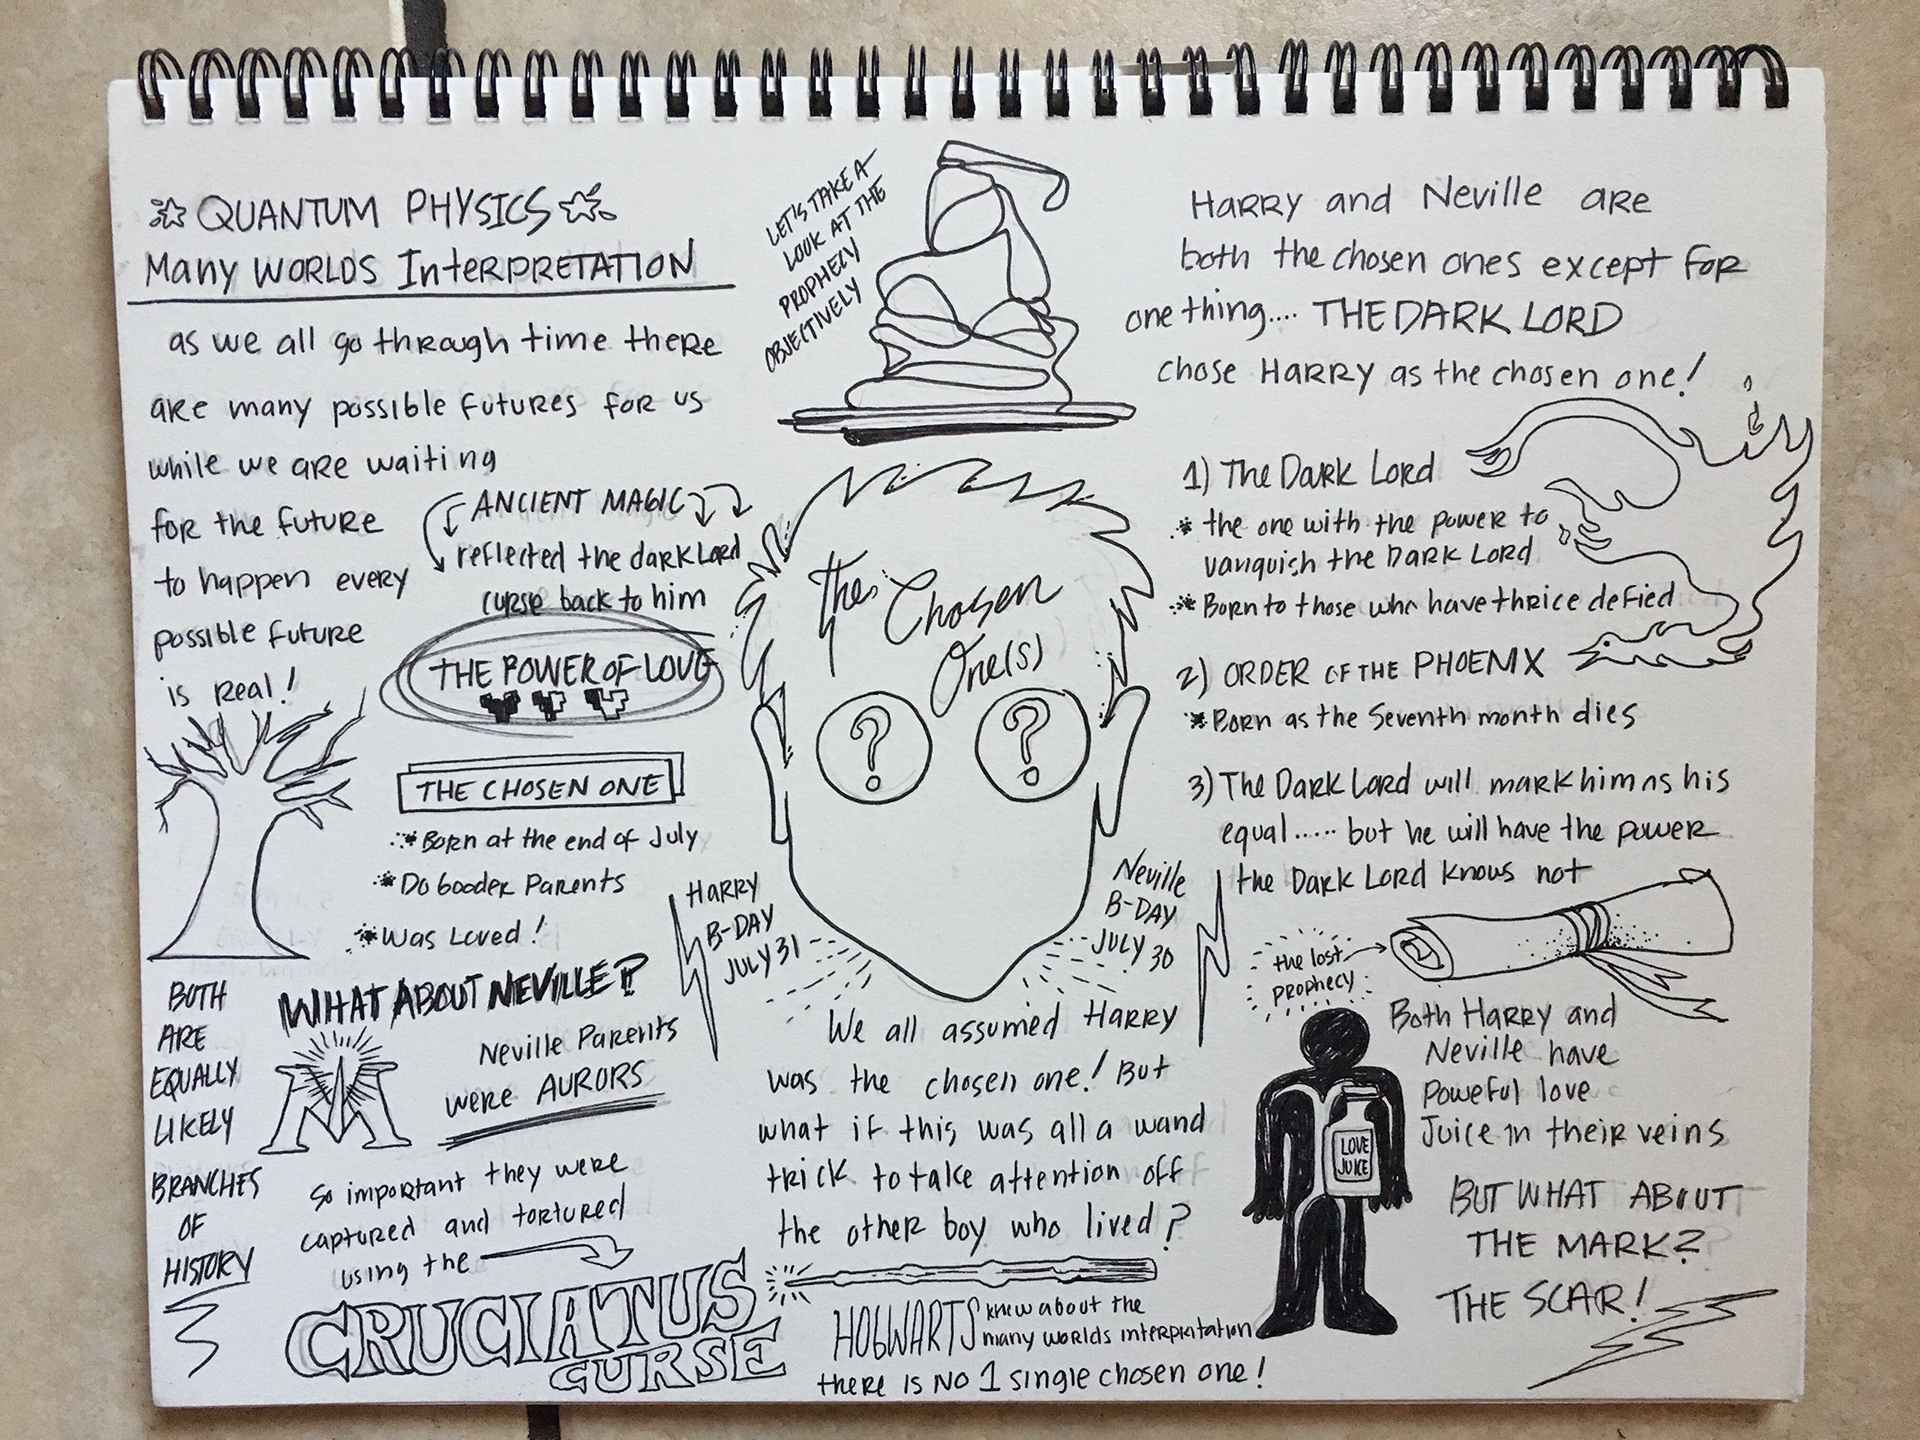 QUANTUM PHYSICS
Many WORLDS InteRPRETATION
as we all go through time there
are many possible futures for us
while we are waiting
for the future
to happen every
possible future
is real!
ANCIENT MAGIC
reflected the dark Lord
curse back to him
THE POWER OF LOVE
THE CHOSEN ONE
Born at the end of July
Do Gooder Parents
Was Loved!
BOTH
ARE
EQUALLY
LIKELY
BRANCHES
OF
HISTORY
WHAT ABOUT NEVILLE?
Neville Parents
were AURORS
So important they were
captured and tortured
using the
CRUCIATUS
CURSE
LET'S TAKE A
LOOK AT THE
PROPHECY
OBJECTIVELY
The Chosen
One(s)
?
?
HARRY
B-DAY
JULY 31
Neville
B-DAY
JULY 30
We all assumed Harry
was the chosen one! But
what if this was all a wand
trick to take attention off
the other boy who lived?
HOGWARTS knew about the
many worlds interpretation
there is NO 1 single chosen one!
Harry and Neville are
both the chosen ones except for
one thing.... THE DARK LORD
chose Harry as the chosen one!
1) The Dark Lord
the one with the power to
vanquish the Dark Lord
Born to those who have thrice defied
2) ORDER OF THE PHOENIX
Born as the Seventh month dies
3) The Dark Lord will mark him as his
equal..... but he will have the power
the Dark Lord knows not
the lost
prophecy
Both Harry and
Neville have
Poweful love
Juice in their veins
LOVE
JUICE
BUT WHAT ABOUT
THE MARK?
THE SCAR!